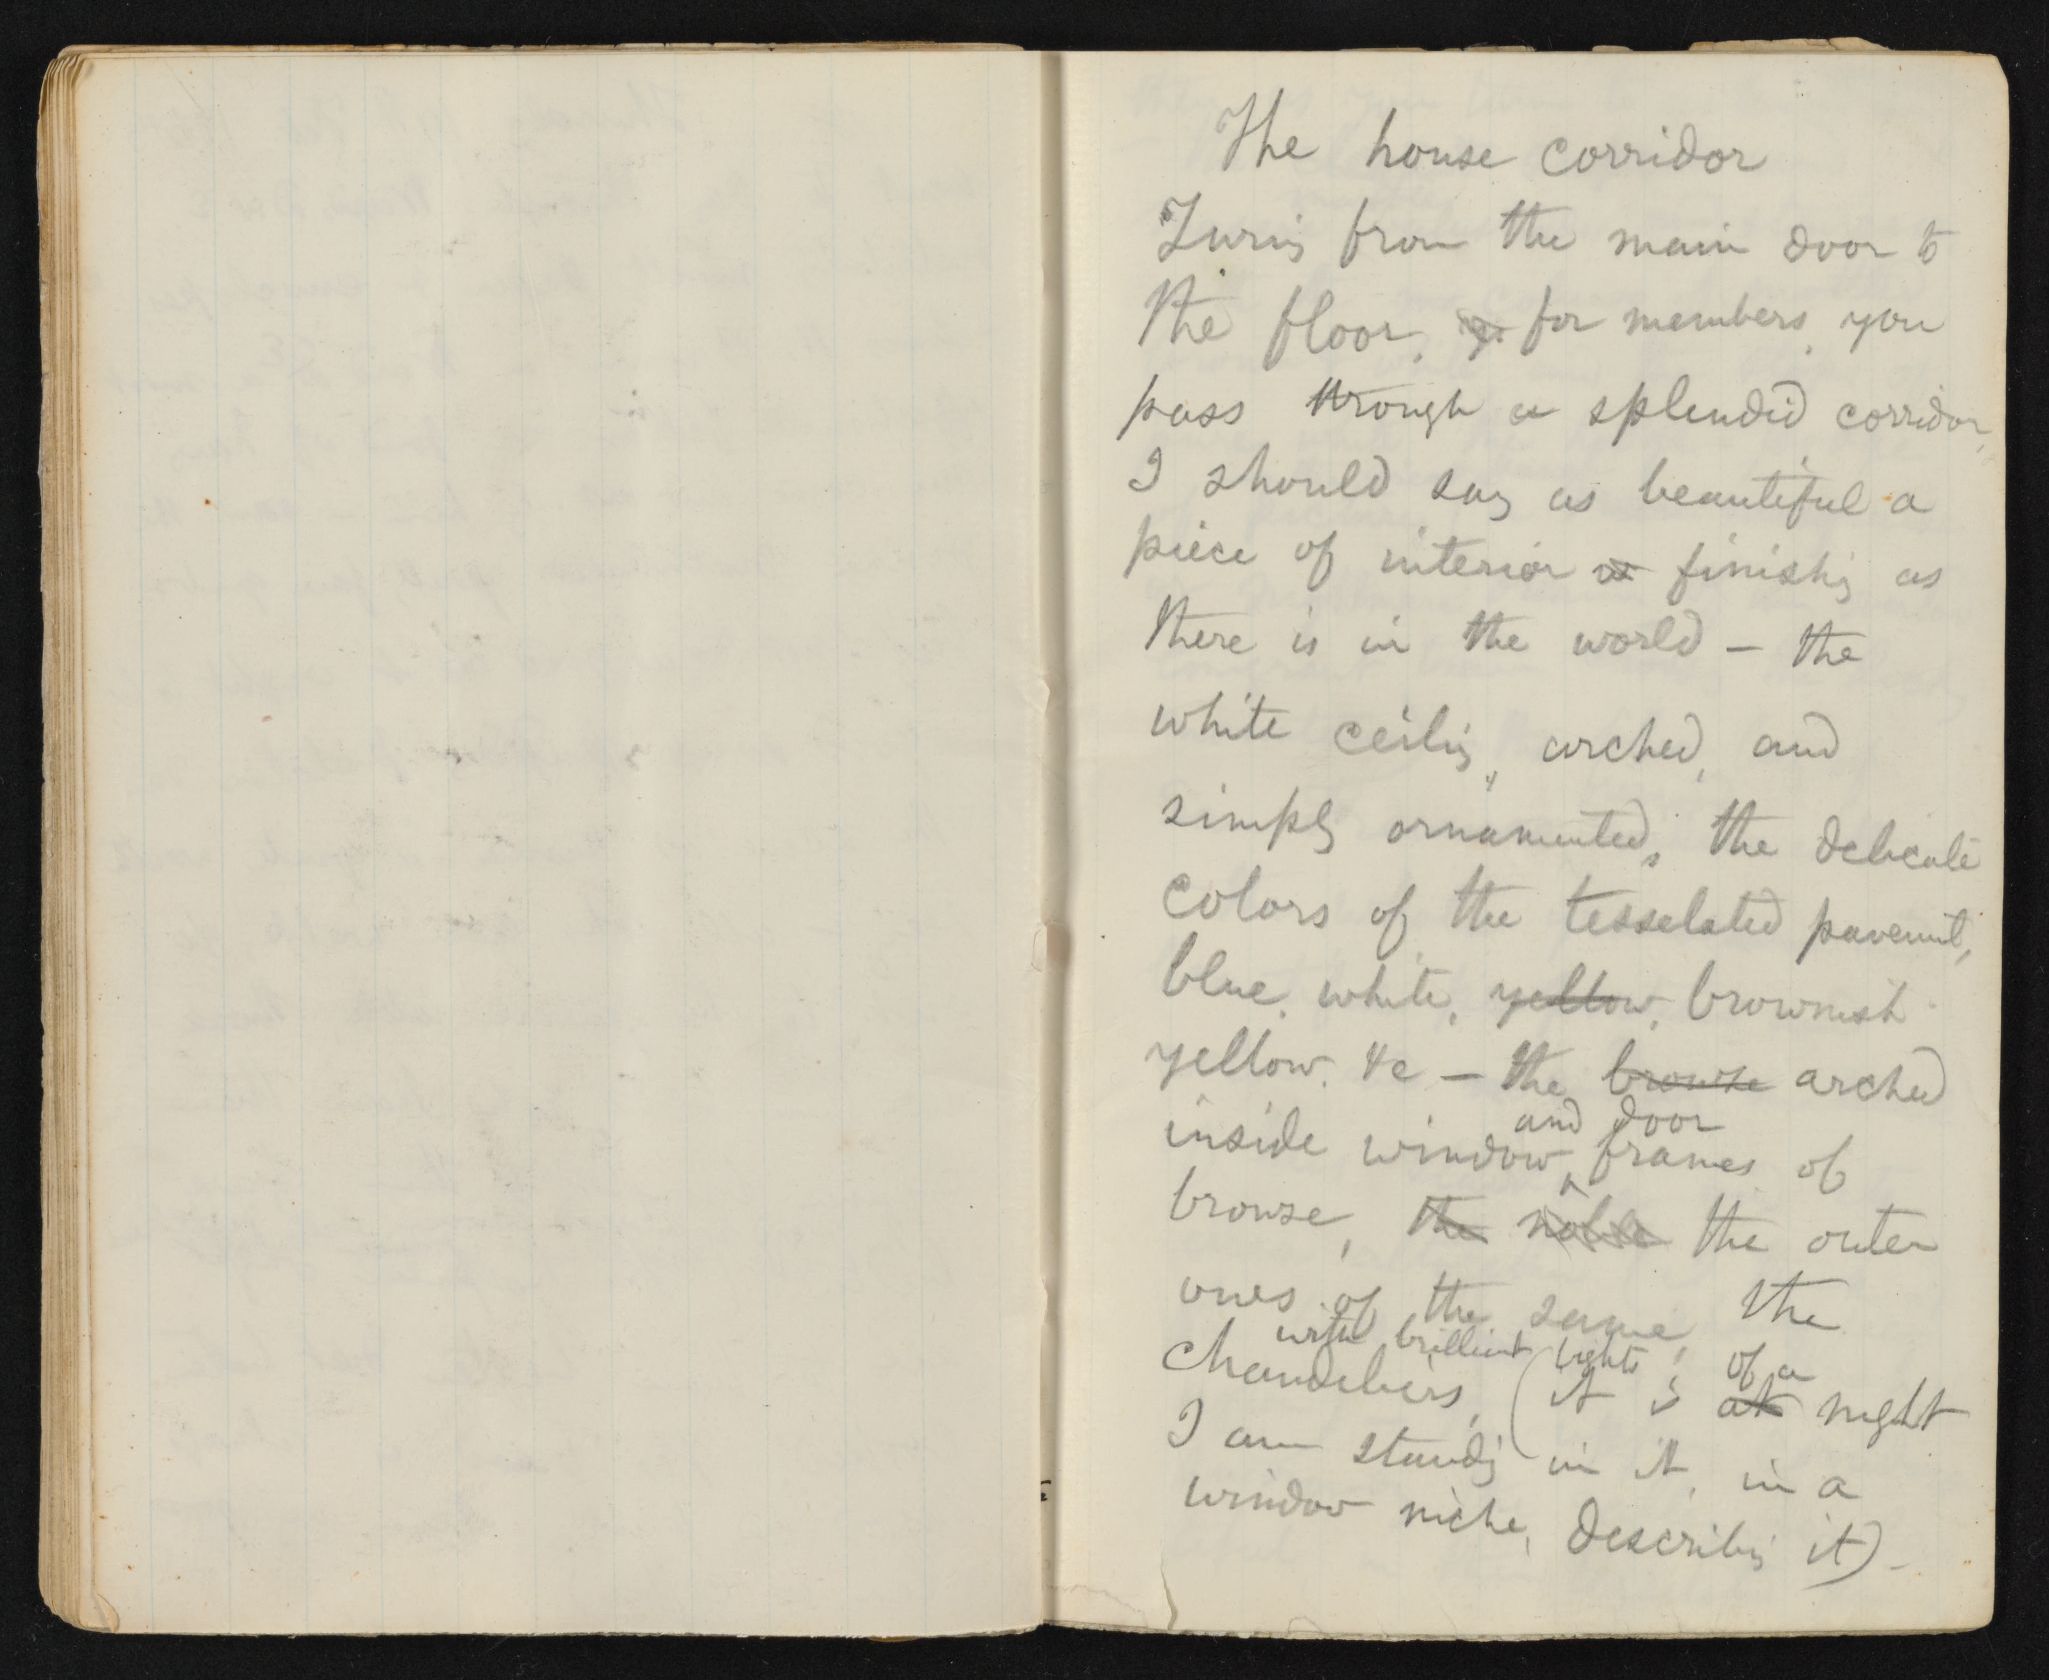 The house corridor
Turng from the main door to
the floor, for members, you
pass through a splendid corridor,
I should say as beautiful a
piece of interior finishg as
there is in the world – the
white ceilig, arched, and
simply ornamented, the delicate
colors of the tesselated pavement,
blue, white, yellow, brownish
yellow. &c – the bronze arched
and door
inside window frames of
bronze, the noble the outer
ones of the same, the
with brilliant lights; of a
chandeliers, (it is at night
I am standg in it, in a
window niche, describig it) –